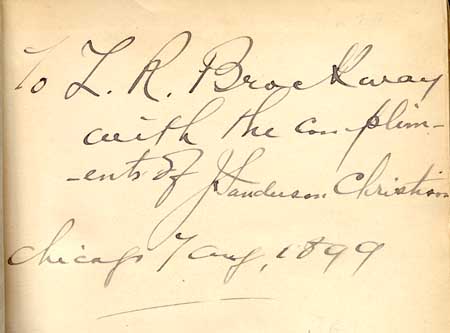 To L. R. Brockway
with the complim-
-ents of J Sanderson Christison
Chicago 7 Aug, 1899